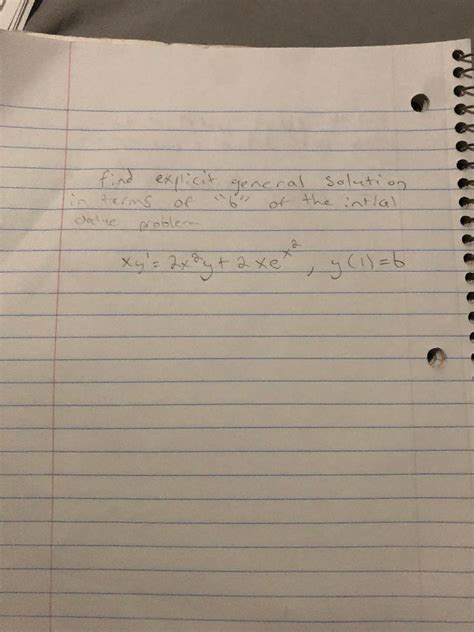 find explicit general solution
in terms of "b" of the intical
value problem
xy' = 2x²y + 2xe^x², y(1)=b